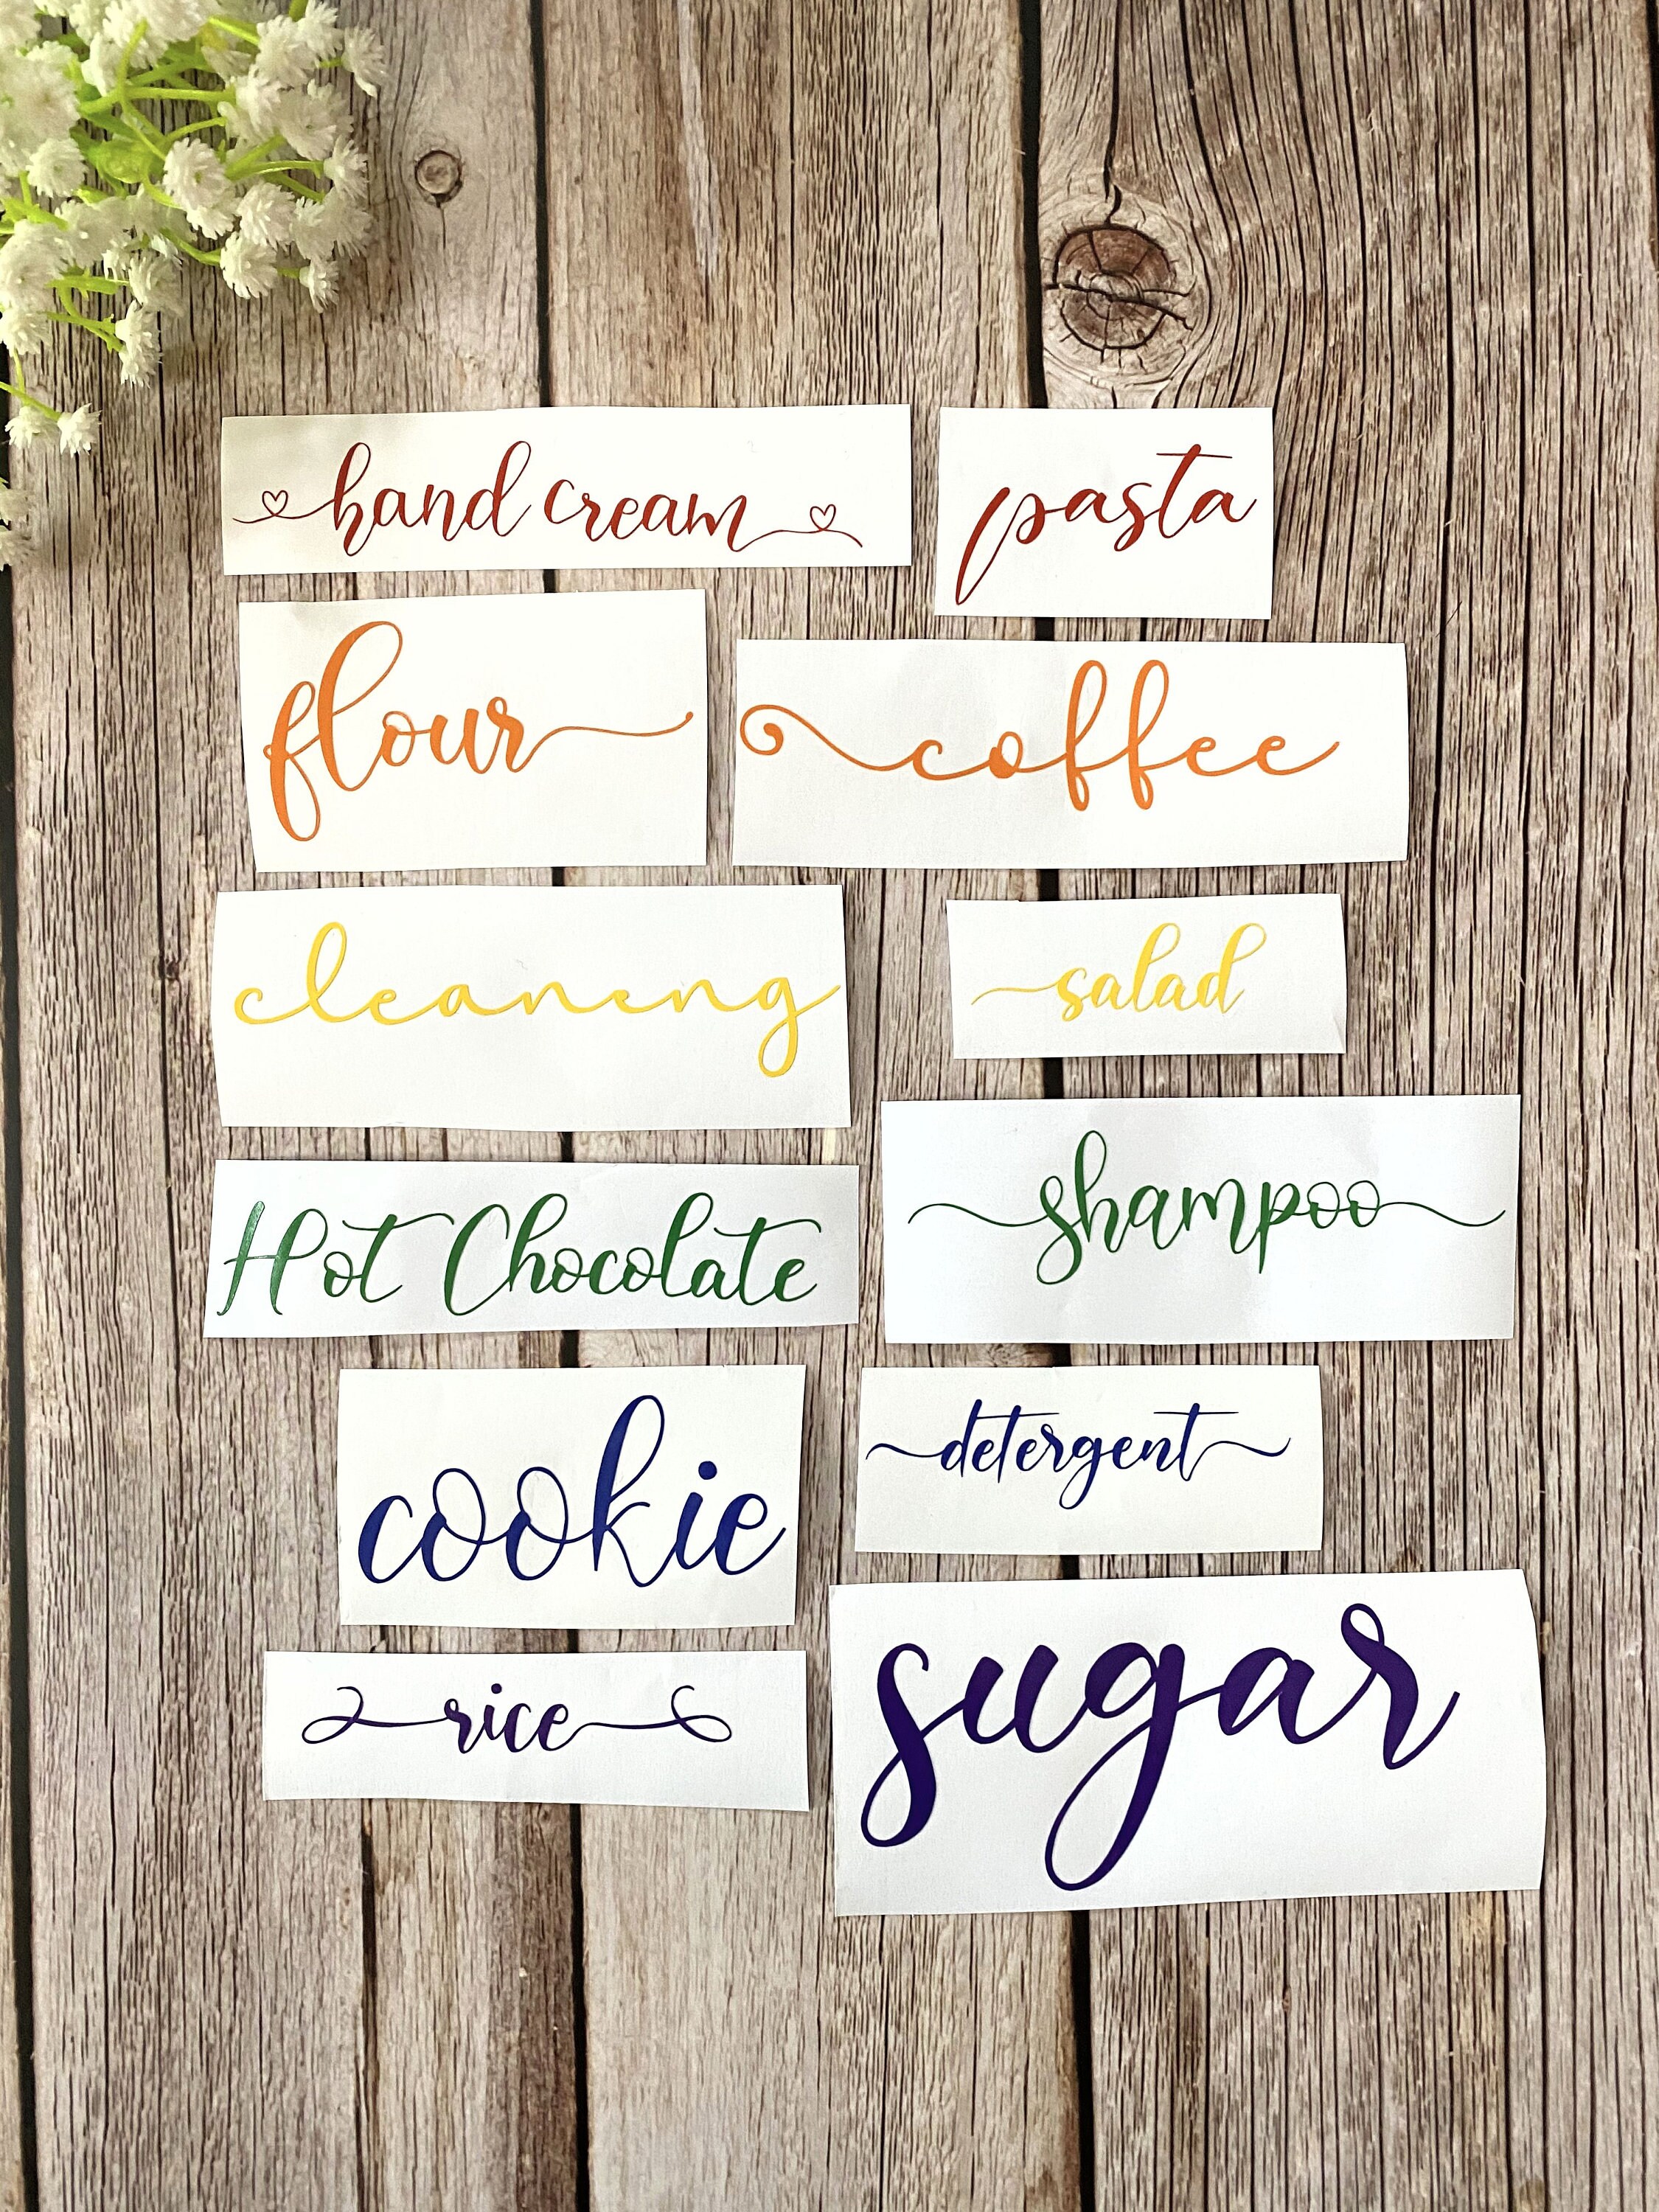 hand cream
pasta
flour
coffee
cleaneng
salad
Hot Chocolate
shampoo
cookie
detergent
rice
sugar